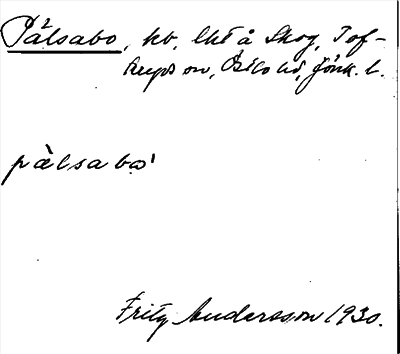 Pålsabo, hb, lht å Skog, Tof-
teryds sn, Östbo hd, Jönk. l.
pàlsabo'
Fritz Andersson 1930.